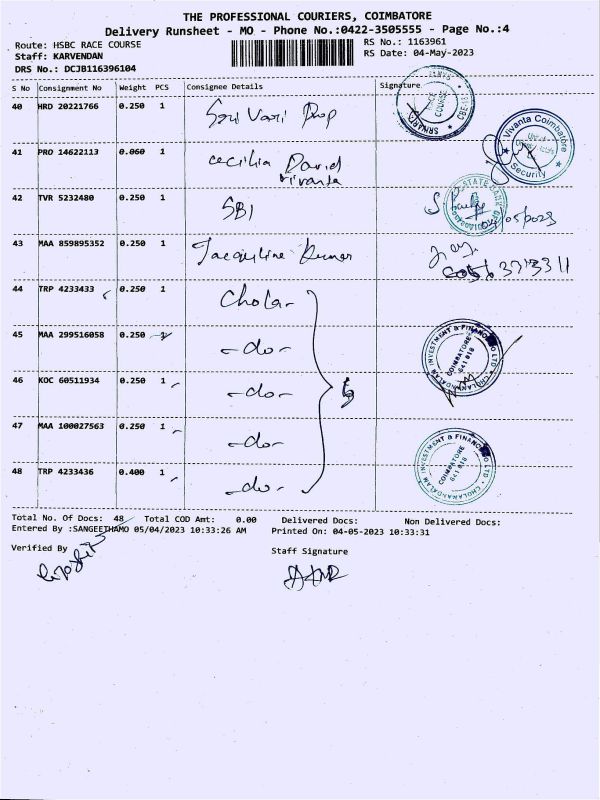 THE PROFESSIONAL COURIERS, COIMBATORE
Delivery Runsheet - MO - Phone No.:0422-3505555 - Page No.:4
Route: HSBC RACE COURSE RS No.: 1163961
Staff: KARVENDAN RS Date: 04-May-2023
DRS No.: DCJB116396104
S No Consignment No Weight PCS Consignee Details Signature
40 HRD 20221766 0.250 1 Sri Vari Prop
41 PRO 14622113 0.060 1 Cecilia David
Vivanta
Vivanta Coimbatore
Security
42 TVR 5232480 0.250 1 SBI
STATE BANK
43 MAA 859895352 0.250 1 Jacquline Kumar
44 TRP 4233433 0.250 1 Chola-
45 MAA 299516058 0.250 -do-
CHOLAMANDALAM INVESTMENT & FINANCE CO LTD
COIMBATORE
641 018
46 KOC 60511934 0.250 1 -do- 5
47 MAA 100027563 0.250 1 -do-
48 TRP 4233436 0.400 1 -do-
CHOLAMANDALAM INVESTMENT & FINANCE CO LTD
COIMBATORE
641 018
Total No. Of Docs: 48 Total COD Amt: 0.00 Delivered Docs: Non Delivered Docs:
Entered By :SANGEETHAMO 05/04/2023 10:33:26 AM Printed On: 04-05-2023 10:33:31
Verified By Staff Signature